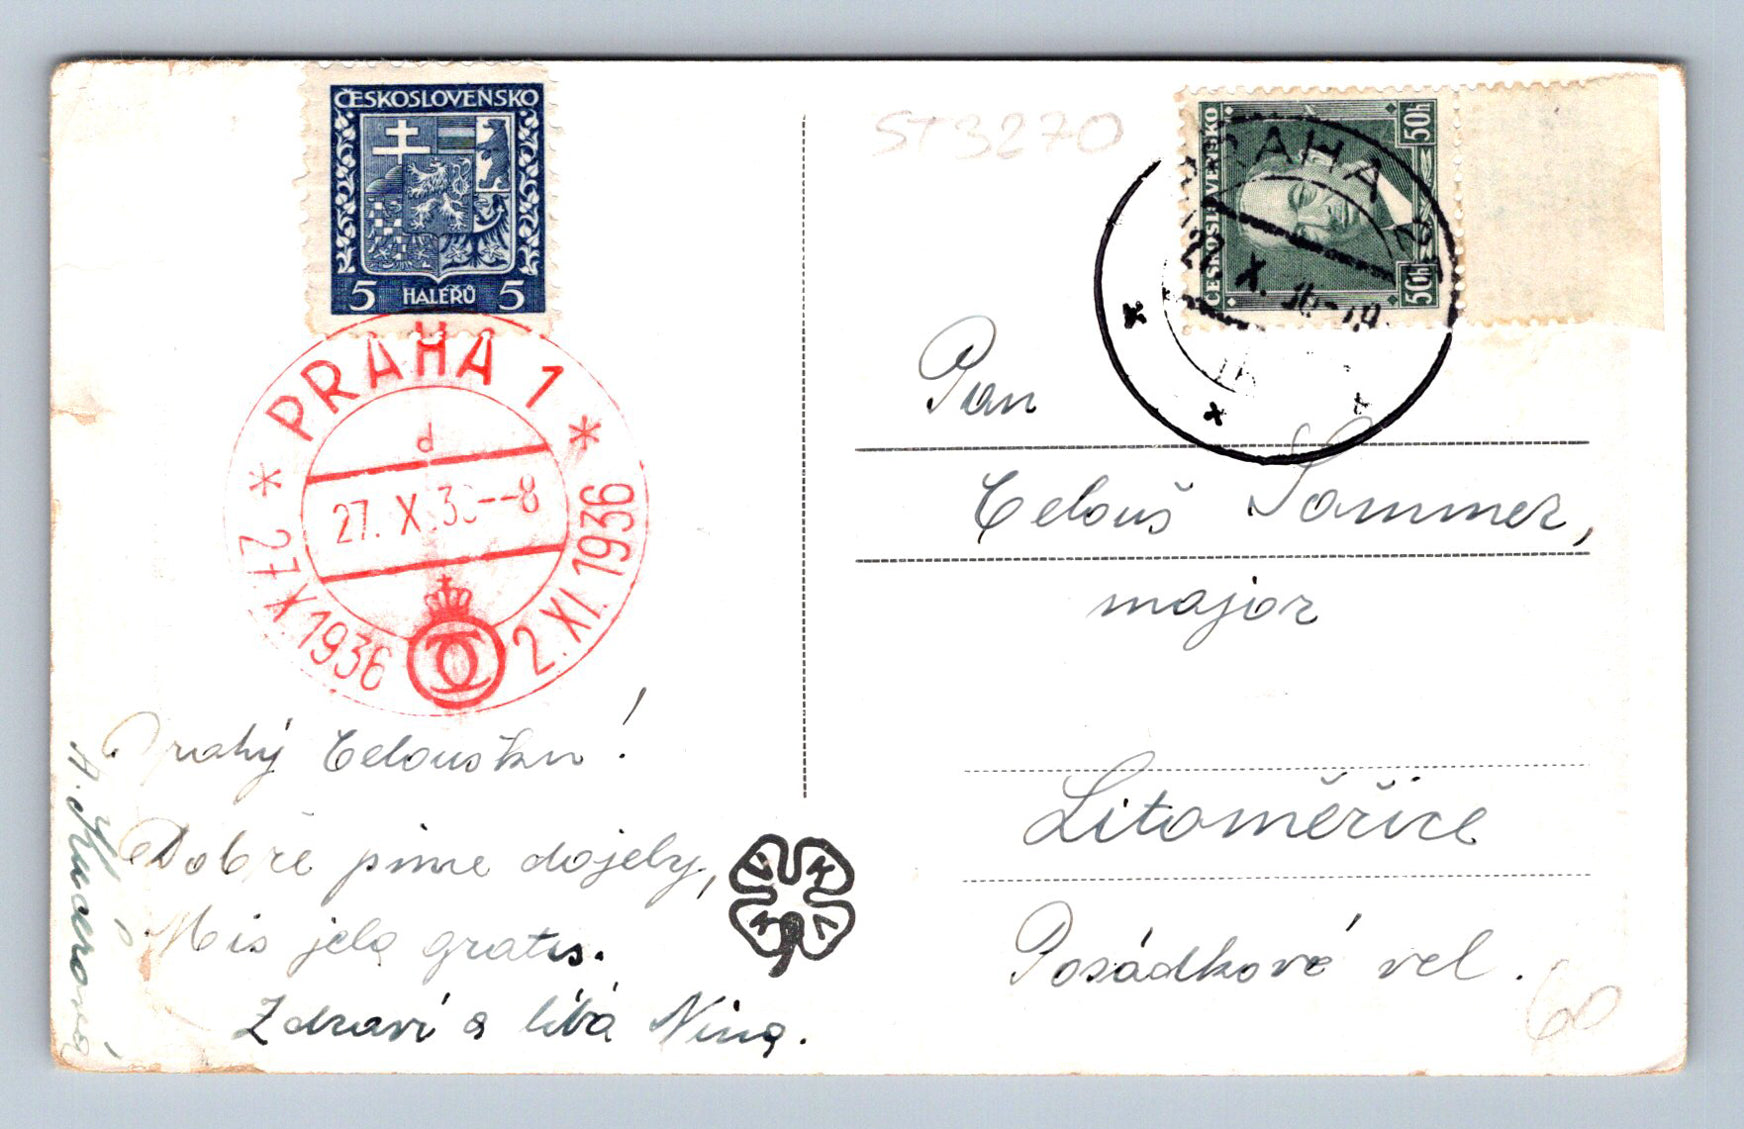 ČESKOSLOVENSKO
5 HALÉŘŮ 5
PRAHA 1
d
27. X 36--8
27.X.1936
2. XI. 1936
Drahý Celoušku!
Dobře jsme dojely,
Mis jela gratis.
Zdraví a líbá Nina.
A. Kučerová
VKKV
ST3270
ČESKOSLOVENSKO
50h
50h
PRAHA
X. 36-19
Pan
Celouš Sommer,
major
Litoměřice
Posádkové vel.
60